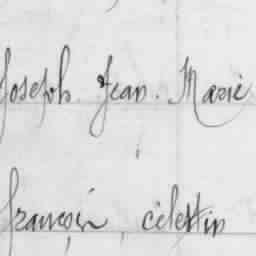 Joseph Jean. Marie
françois, célestin